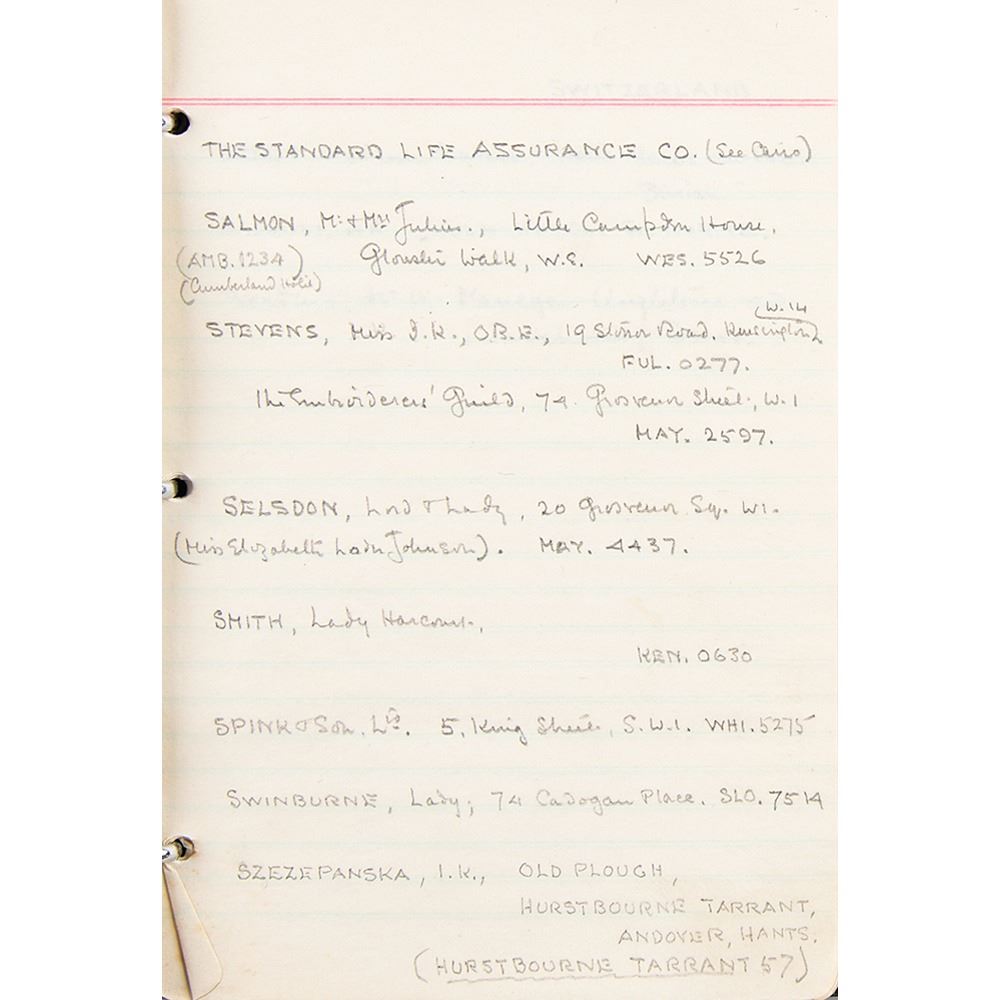 THE STANDARD LIFE ASSURANCE CO. (See Cairo)
SALMON, Mr & Mrs Julius., Little Campden House,
(AMB. 1234) Gloucester Walk, W.8. WES. 5526
(Cumberland Hotel)
W.14
STEVENS, Miss I.K., O.B.E., 19 Stonor Road, Kensington
FUL. 0277.
The Embroiderers' Guild, 74 Grosvenor Street, W.1
MAY. 2597.
SELSDON, Lord & Lady, 20 Grosvenor Sq. W1.
(Miss Elizabeth Johnson). MAY. 4437.
SMITH, Lady Harcourt,
KEN. 0630
SPINK & Son. Ltd. 5, King Street, S.W.1. WHI. 5275
SWINBURNE, Lady, 74 Cadogan Place. SLO. 7514
SZEZEPANSKA, I.K., OLD PLOUGH,
HURSTBOURNE TARRANT,
ANDOVER, HANTS.
(HURSTBOURNE TARRANT 57)